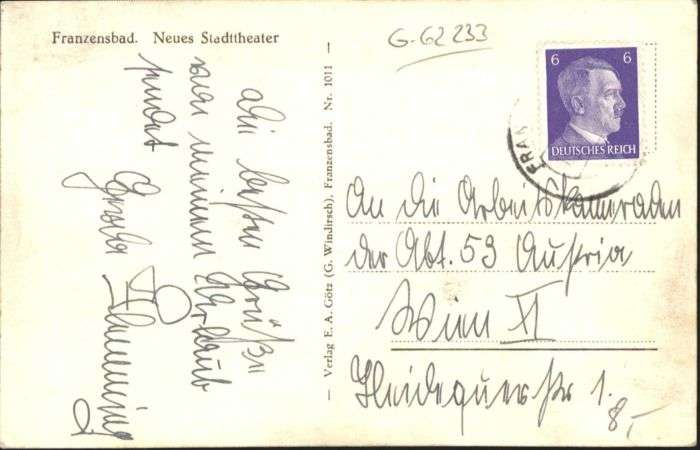 Franzensbad. Neues Stadttheater
G-62233
6 6
DEUTSCHES REICH
FRAN
Die besten Grüße
von meinem Urlaub
sendet
— Verlag E. A. Götz (G. Windirsch), Franzensbad. Nr. 1011 —
An die Arbeitskameraden
der Abt. 53 Austria
Wien XI
Haidequerstr 1.
8,-